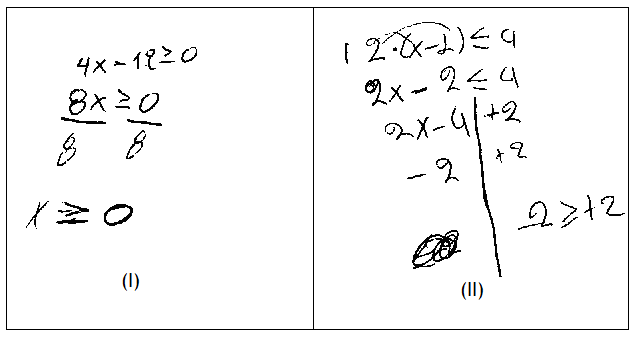 4x - 12 ≥ 0
8x ≥ 0
8 8
x ≥ 0
(I)
2·(x-1) ≤ 4
2x - 2 ≤ 4
2x - 4 +2
- 2 +2
2 ≥ +2
(II)